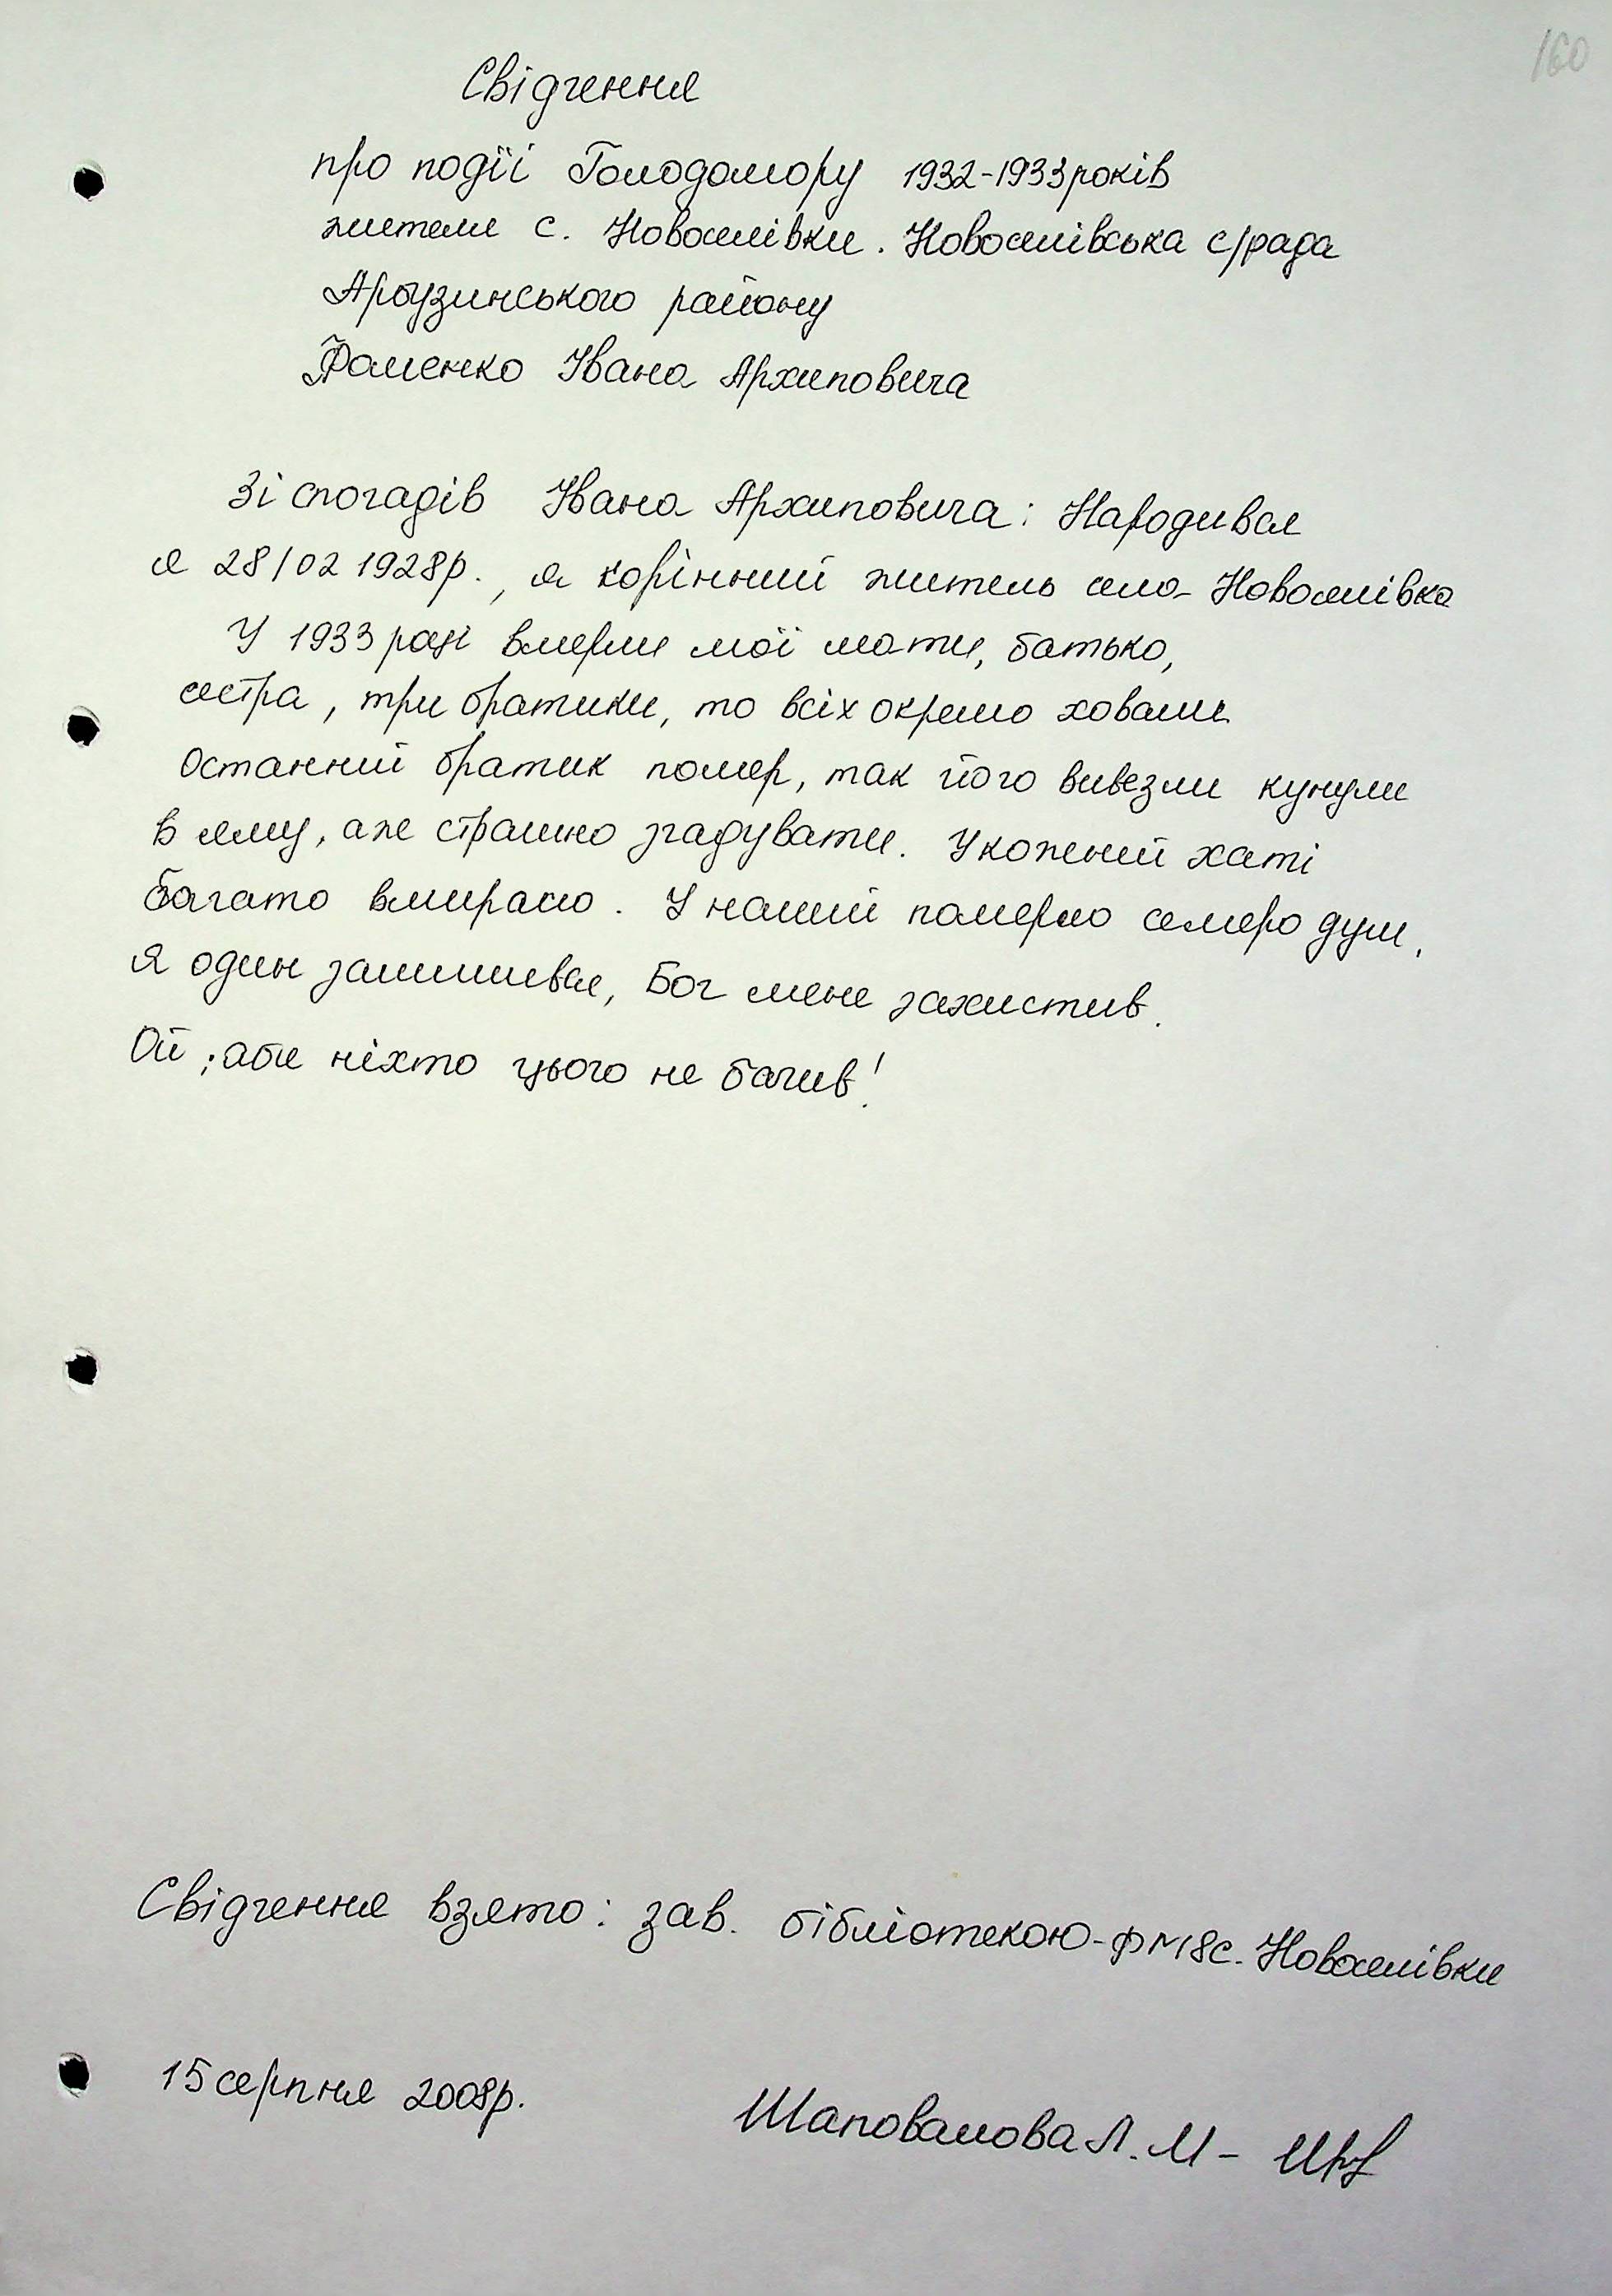 160
Свідчення
про події Голодомору 1932-1933 років
жителя с. Новоселівки. Новоселівська с/рада
Арбузинського району
Фоменко Івана Архиповича
Зі спогадів Івана Архиповича: Народився
я 28/02 1928р., я корінний житель села Новоселівка
У 1933 році вмерли мої мати, батько,
сестра, три братики, то всіх окремо ховали
Останній братик помер, так його вивезли кунули
в яму, аже страшно згадувати. У кожений хаті
багато вмирало. У наший померло семеро душ,
я один залишився, Бог мене захистив.
Ой, аби ніхто цього не бачив!
Свідчення взято: зав. бібліотекою-ф №18 с. Новоселівки
15 серпня 2008р.
Шаповалова Л. М -